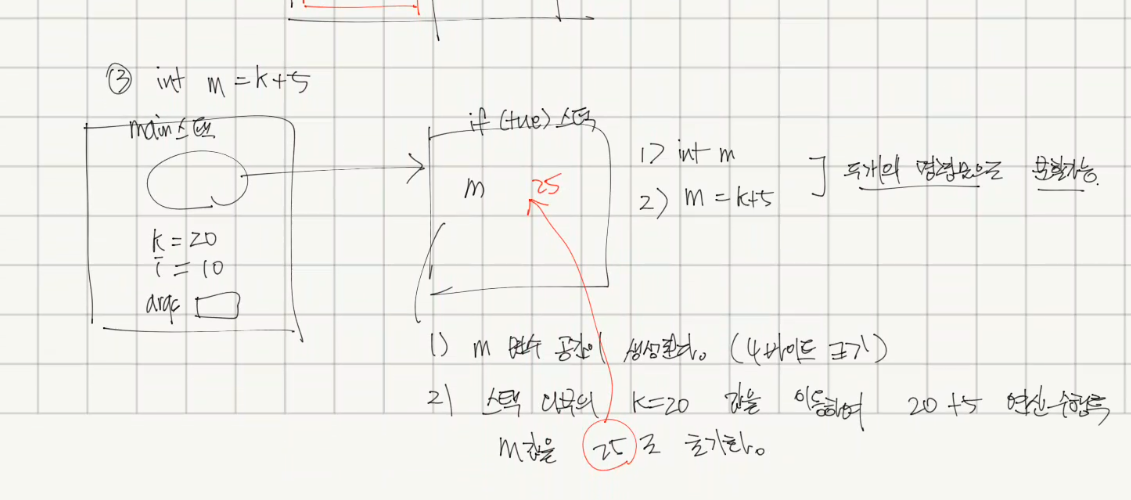 ③ int m = k+5
main스택
k = 20
i = 10
args
if (true) 스택
m 25
1) int m
2) m = k+5
두개의 명령문으로 분할가능.
1) m 변수 공간이 생성된다. (4바이트 크기)
2) 스택 외국의 k=20 값을 이용하여 20+5 연산 수행후
m값을 25로 초기화.